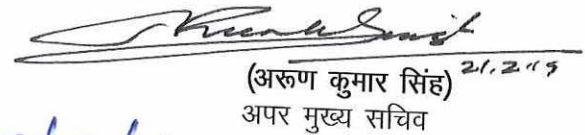 (अरूण कुमार सिंह) 21.2.19
अपर मुख्य सचिव